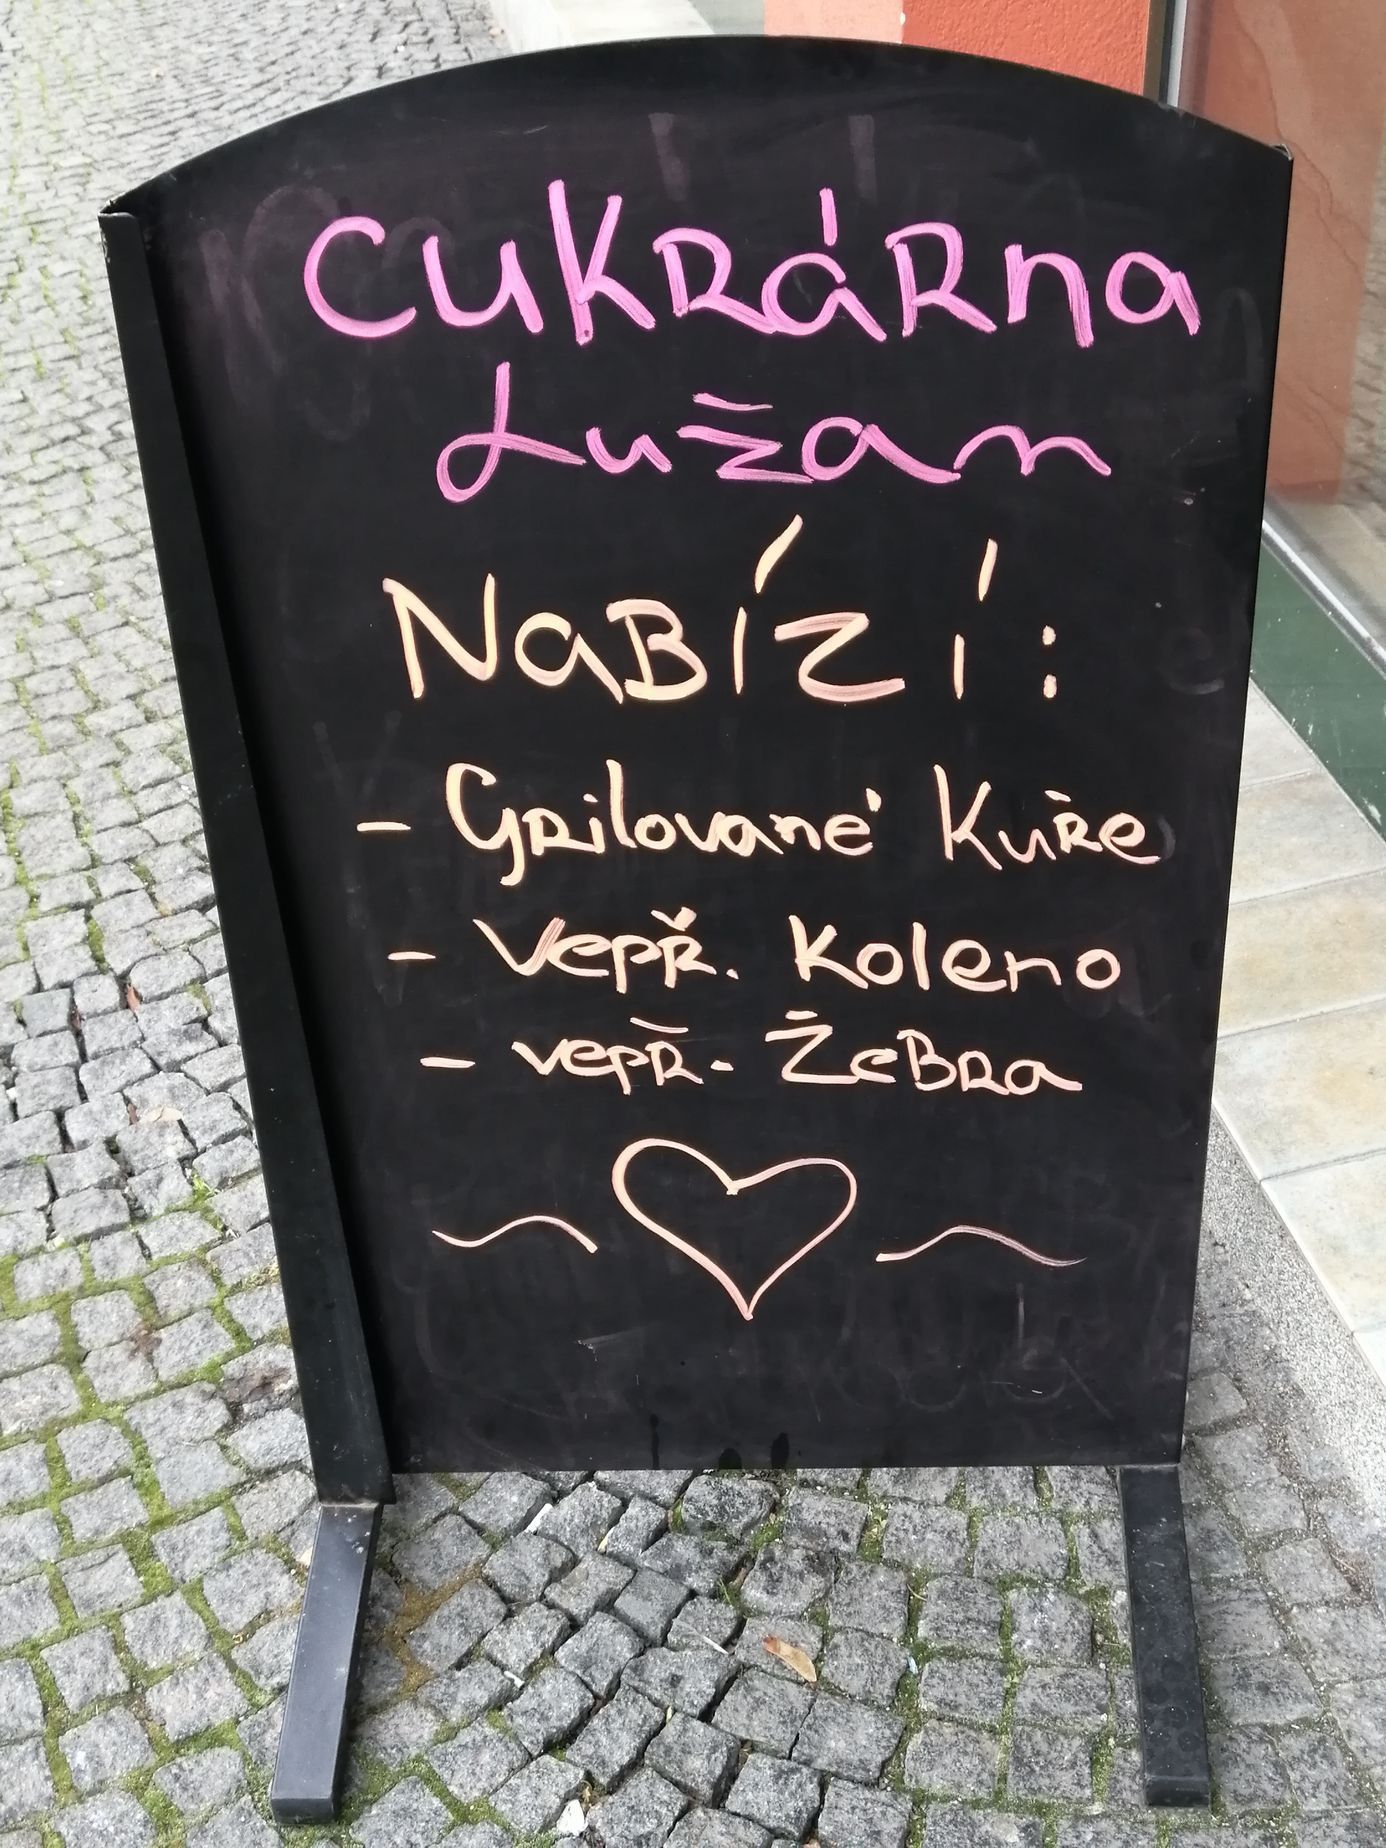 Cukrárna
Lužan
Nabízí:
- Grilované Kuře
- Vepř. Koleno
- vepř. Žebra